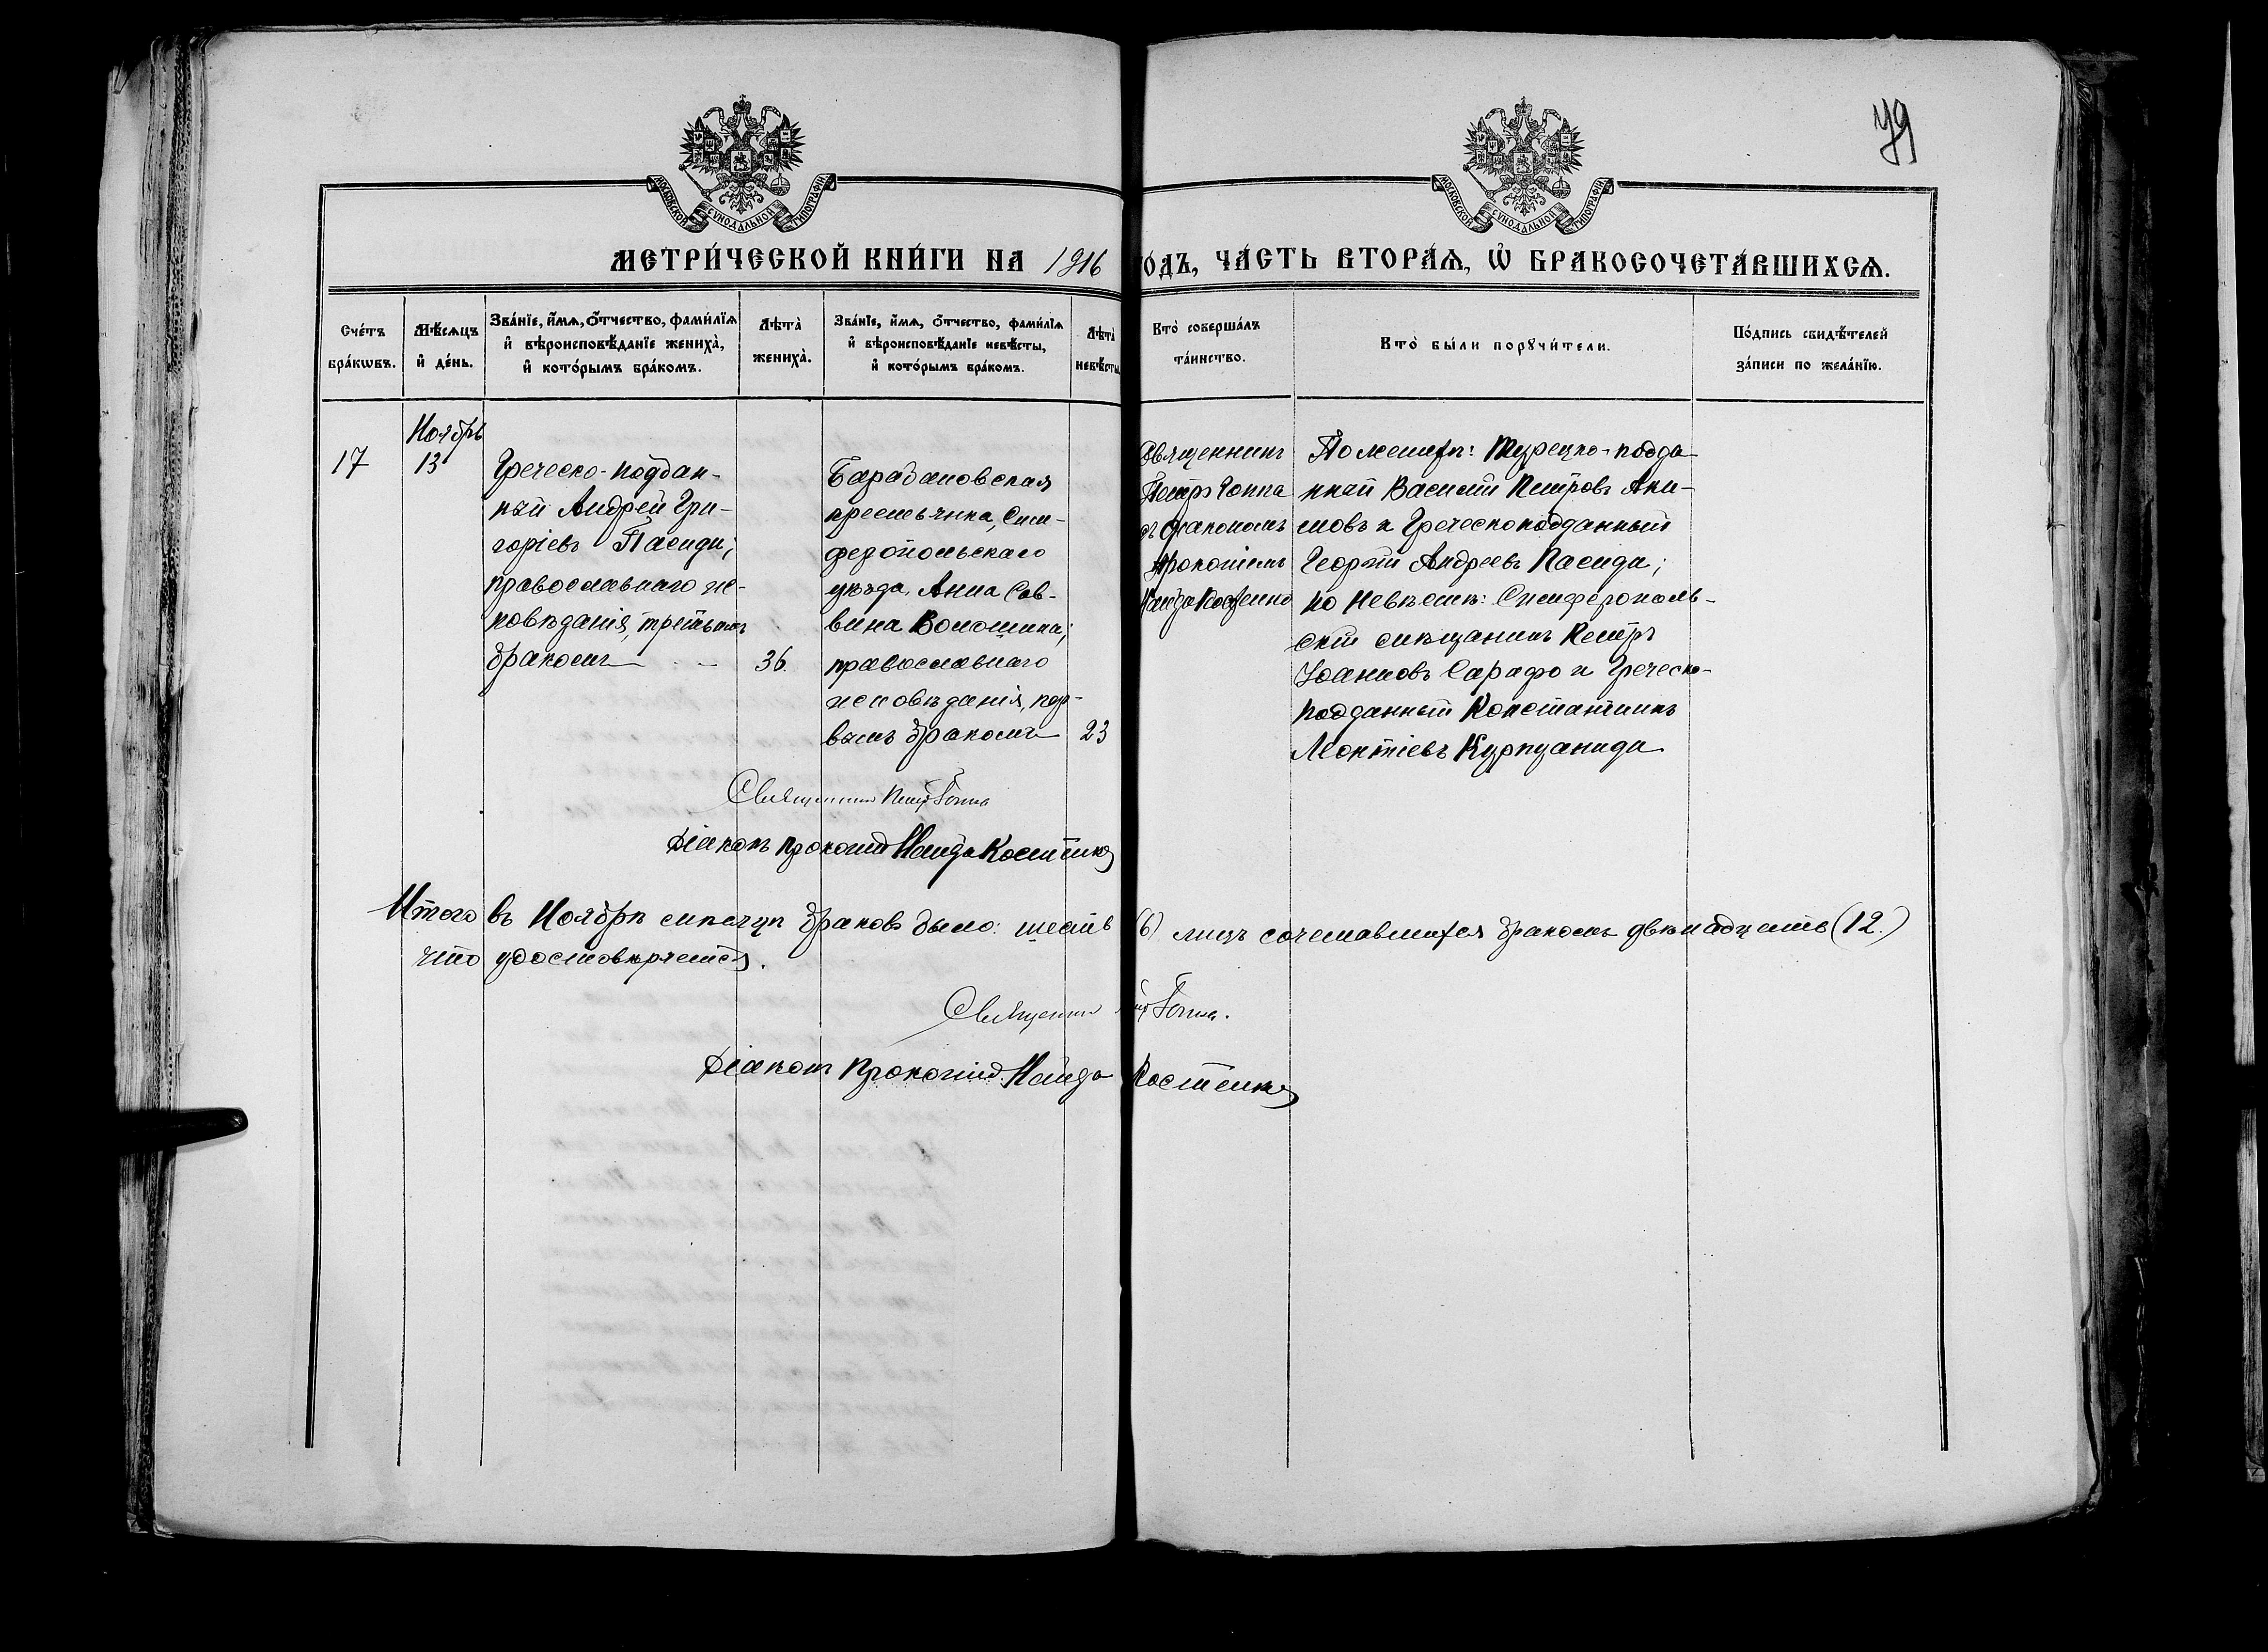 79
МОСКОВСКОЙ СѴНОДАЛЬНОЙ ТИПОГРАФІИ
МОСКОВСКОЙ СѴНОДАЛЬНОЙ ТИПОГРАФІИ
МЕТРИ́ЧЕСКОЙ КНИ́ГИ НА 1916 ГО́ДЪ, ЧА́СТЬ ВТОРА́Ѧ, Ѽ БРАКОСОЧЕТА́ВШИХСѦ.
Сче́тъ
бра́кѡвъ.
Мѣ́сяцъ
и҆ де́нь.
Зва́нїе, и҆́мѧ, ѻ҆́тчество, фами́лїѧ
и҆ вѣроисповѣ́данїе жениха̀,
и҆ кото́рымъ бра́комъ.
Лѣта̀
жениха̀.
Зва́нїе, и҆́мѧ, ѻ҆́тчество, фами́лїѧ
и҆ вѣроисповѣ́данїе невѣ́сты,
и҆ кото́рымъ бра́комъ.
Лѣта̀
невѣ́сты
Кто̀ соверша́лъ
та́инство.
Кто̀ бы́ли порꙋчи́тели.
По́дпись свидѣ́телей
за́писи по жела́нїю.
17
Ноябрь
13
Греческо-поддан-
ный Андрей Гри-
горіевъ Пасиди,
православнаго ис-
повѣданія, третьимъ
бракомъ
36.
Симферопольскаго
крестьянка, Сим-
феропольскаго
уѣзда, Анна Сав-
вина Волошина,
православнаго
исповѣданія, пер-
вымъ бракомъ
23
Священникъ
Петръ Гоппа
съ діакономъ
Прокопіемъ
Найда Костенко
По женихѣ: Турецко-подда-
нный Василій Петровъ Аки-
мовъ и Греческоподданный
Георгій Андреевъ Пасиди;
по Невѣстѣ: Симферополь-
скій мѣщанинъ Петръ
Іоанновъ Сарафо и Греческо-
подданный Константинъ
Леонтіевъ Курпуаниди
Священникъ Петръ Гоппа
Діаконъ Прокопій Найда Костенко
Итого въ Ноябрѣ мѣсяцѣ браковъ было: шесть (6) лицъ сочетавшихся бракомъ двѣнадцать (12.)
что удостовѣряется.
Священникъ Петръ Гоппа.
Діаконъ Прокопій Найда Костенко